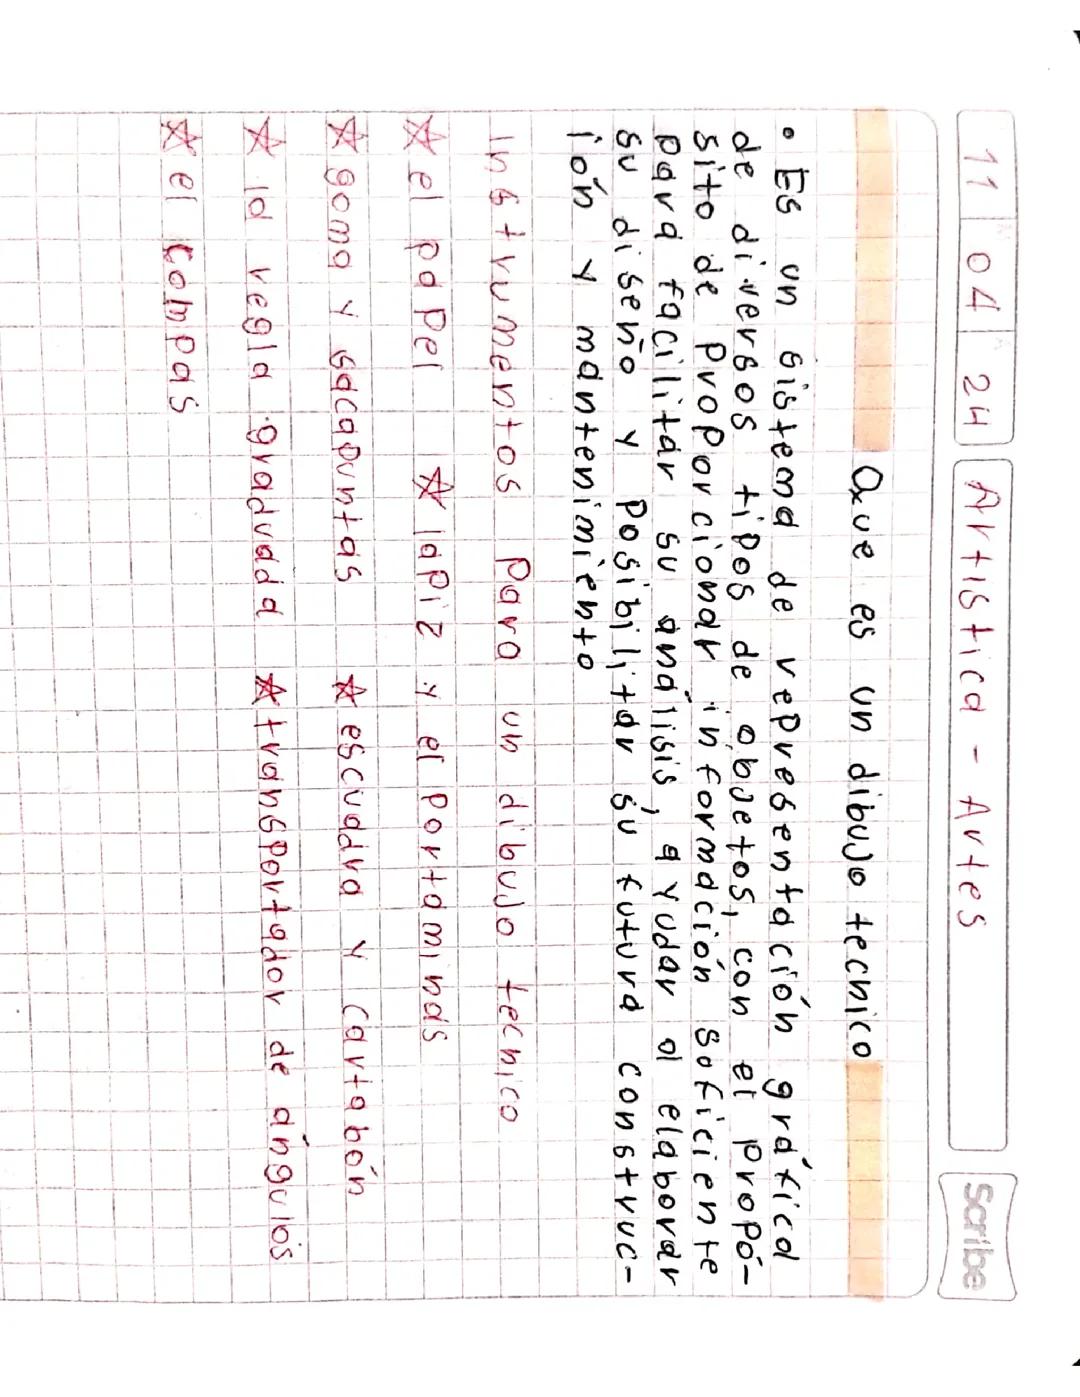 11 04 24 Artistica - Artes Scribe
Que es un dibujo tecnico
• Es un sistema de representación gráfica
de diversos tipos de objetos, con el propó-
sito de proporcionar información soficiente
para facilitar su análisis, ayudar al elaborar
su diseño y posibilitar su futura construc-
ión y mantenimiento
Instrumentos para un dibujo tecnico
☆ el papel ☆ lapiz y el portaminas
☆ goma y sacapuntas ☆ escuadra y Cartabón
☆ la regla graduada ☆ transportador de ángulos
☆ el compas